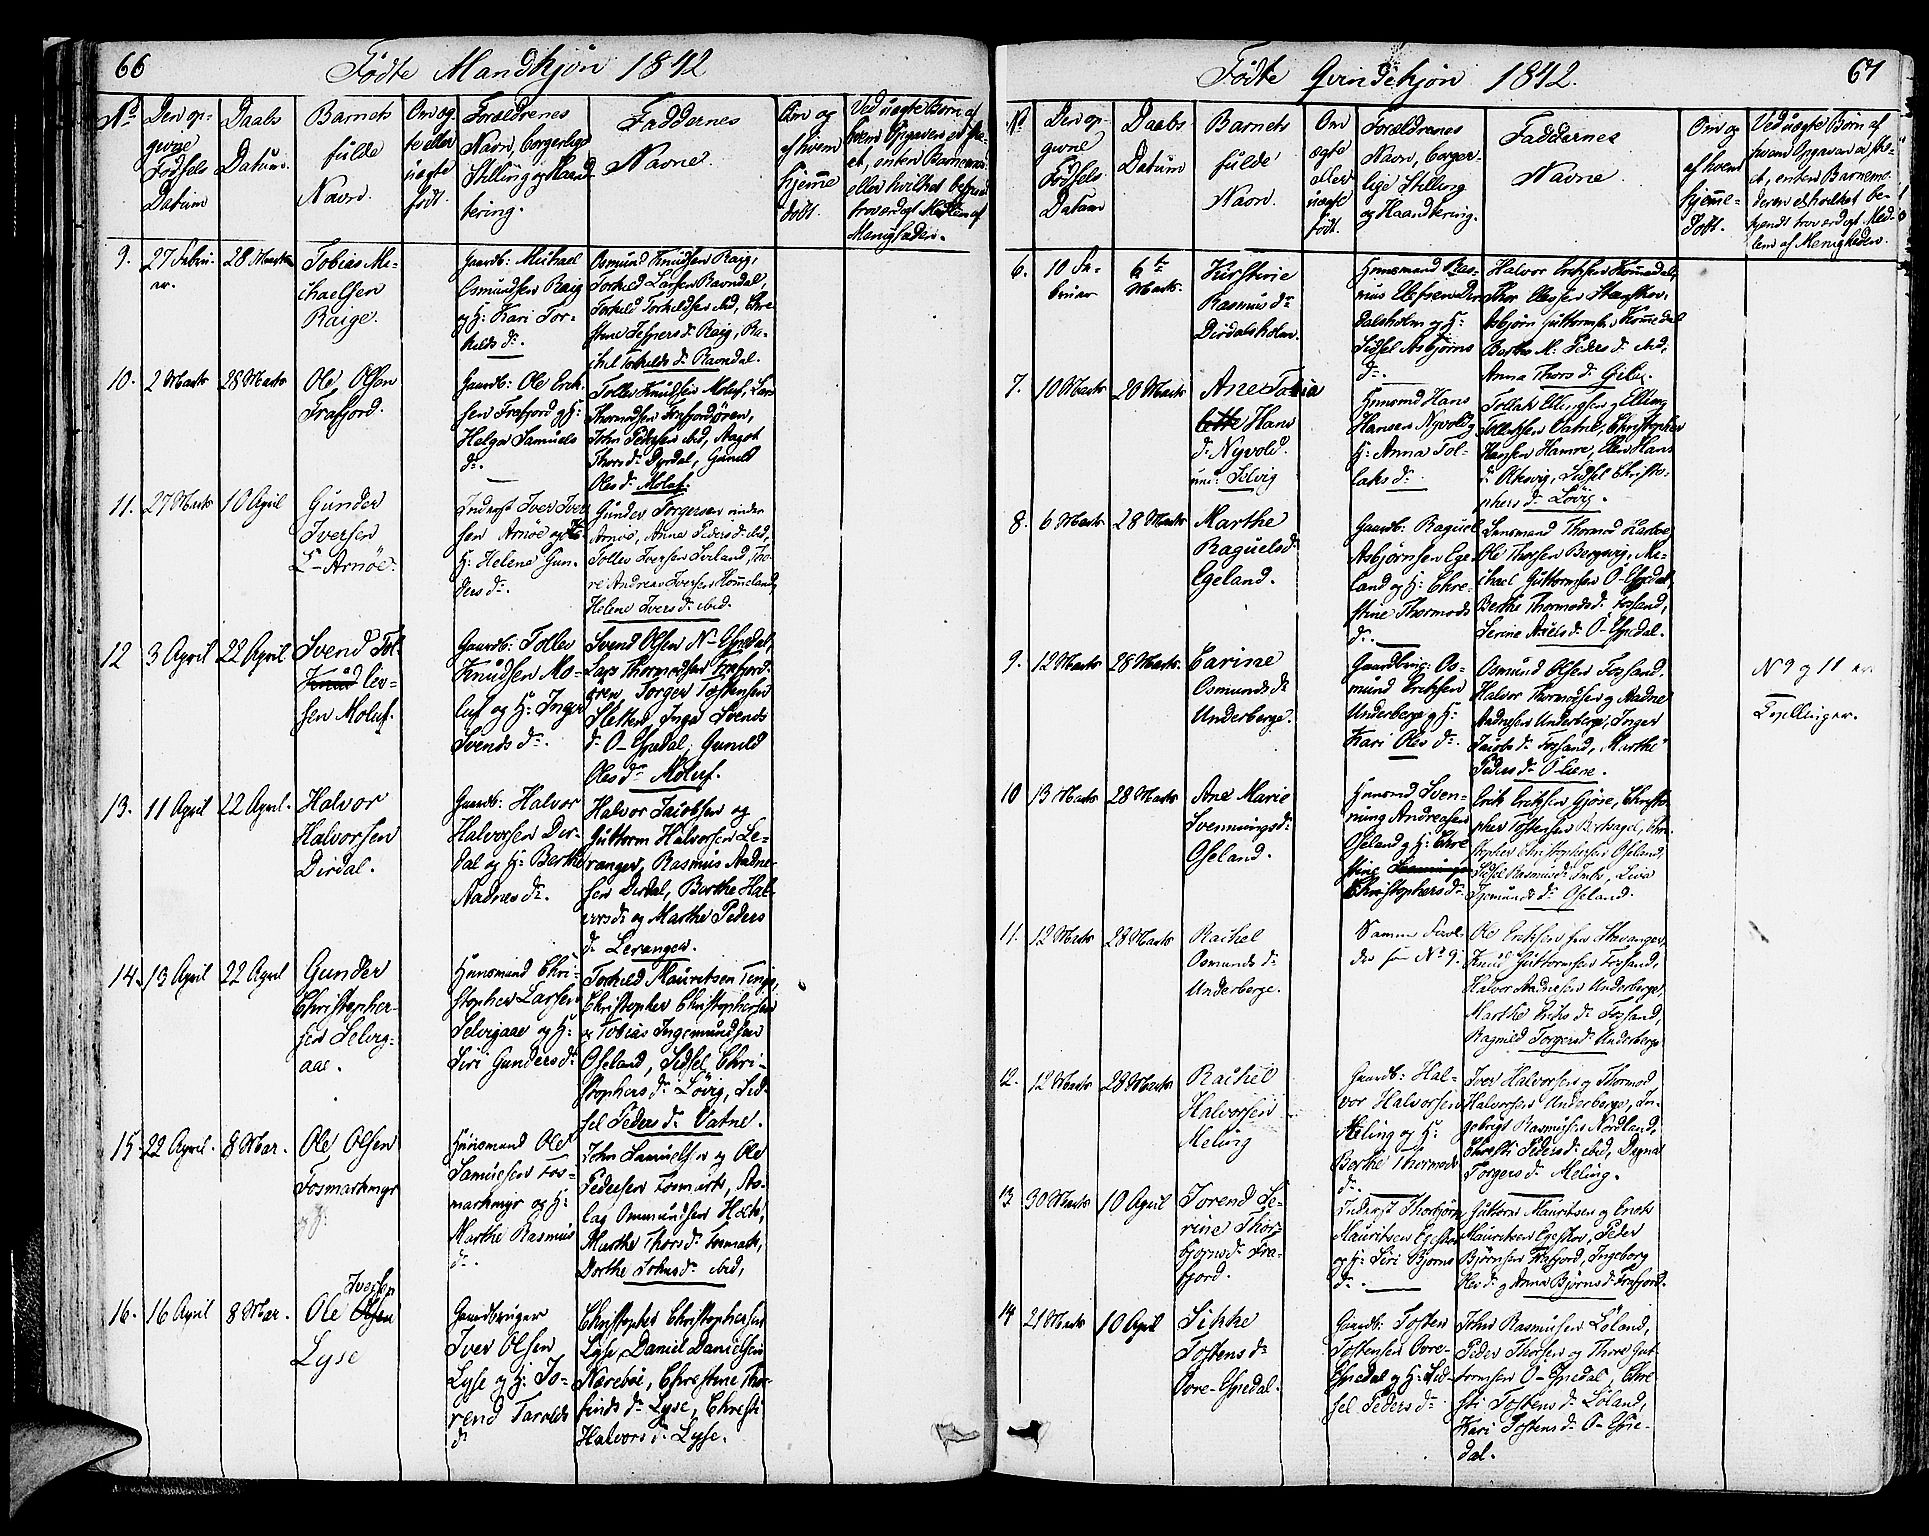 66
Födte Mandkjøn 1842
No
Den op-
givne
Födsels
Datum
Daabs
Datum.
Barnets
fulde
Navn.
Om æg-
te eller
uægte
født.
Forældrenes
Navn, borgerlige
Stilling og Haand-
tering.
Faddernes
Navne.
Om og
af hvem
hjemme
døbt.
Ved uægte Børn af
hvem Opgaven er ske-
et, enten Barnemo
eller hvilket bekjend
troværdigt Medlem af
Menigheden.
9.
27 Febru-
ar.
28 Marts
Tobias Mi-
chaelsen
Raige.
Gaardb: Michael
Osmundsen Raig
og H: Kari Tor-
kelds d:
Osmund Knudsen Raig,
Torkild Larsen Ravndal,
Torkild Torkildsen ibid, Chre
stine Jespers d: Raig, Ra-
chel Torkilds d: Ravndal.
10.
2 Marts
28 Marts
Ole Olsen
Frafjord.
Gaardb: Ole Erik-
sen Frafjord og H:
Helga Samuels
d:.
Tollev Knudsen Moluf, Lars
Thormodsen Frafjordøren,
John Pedersen ibid, Aagot
Thors d: Dyrdal, Gunild
Oles d: Moluf.
11.
27 Marts
10 April
Gunder
Iversen
L-Arnöe.
Inderst Iver Iver
sen Arnöe og
H: Helene Gun-
ders d:.
Gunder Torgersen
Arnöe, Anne Peders d: ibid,
Tollev Iversen Iveland, To-
re Andreas Iversen Kommeland,
Helene Ivers d: ibid.
12
3 April
22 April
Svend Tol-
lev-
sen Moluf.
Gaardb: Tollev
Knudsen Mo-
luf og H: Inger
Svends d:.
Svend Olsen N-Espedal,
Lars Thormodsen Frafjord-
ören, Torger Tostensen
Sletten, Inger Svends
d: O-Espedal, Gunild
Oles d: Moluf.
13.
11 April
22 April.
Halvor
Halvorsen
Dirdal.
Gaardb: Halvor
Halvorsen Dir-
dal og H: Berthe
Aadnes d:.
Halvor Jacobsen og
Guttorm Halvorsen Le-
ranger, Rasmus Aadne-
sen Dirdal, Berthe Hal-
vors d: og Marthe Peders
d: Leranger.
14.
13 April
22 April
Gunder
Christopher-
sen Selvig-
aae.
Huusmand Chri-
stopher Larsen
Selvigaae og H:
Siri Gunders d:
Torkild Mauritsen Tenge,
Christopher Christophersen
og Tobias Ingemundsen
Oseland, Sidsel Chri-
stophers d: Lövig, Sid-
sel Peders d: Vatne.
15.
22 April.
8 Mai.
Ole Olsen
Fosmarkmyr
Huusmand Ole
Samuelsen Fos-
markmyr og H:
Marthe Rasmus
d:.
John Samuelsen og Ole
Pedersen Fosmark, As-
lag Ommundsen Hole,
Marthe Thors d: Fosmark,
Dorthe Johns d: ibid,
16.
16 April
8 Mai.
Iversen
Ole Olsen
Lyse
Gaardbruger
Iver Olsen
Lyse og H: To-
rend Tarolds
d:
Christopher Christophersen
Lyse, Daniel Danielsen
Nærebøe, Christine Thor-
finds d: Lyse, Christi
Halvors d: Lyse.
67
Födte Qvindekjön 1842.
No
Den op-
givne
Födsels
Datum
Daabs
Datum
Barnets
fulde
Navn.
Om
ægte
eller
uægte
født.
Forældrenes
Navn, borger-
lige Stilling
og Haandtering.
Faddernes
Navne.
Om og
af hvem
hjemme-
døbt.
Ved uægte Børn af
hvem Opgaven er ske-
et, enten Barnemo-
deren el. hvilket be-
kjendt troværdigt Med-
lem af Menigheden.
6.
10 Fe-
bruar
6te
Marts.
Kirstine
Rasmus d:
Dirdalsholm.
Huusmand Ras-
mus Elefsen Dir
dalsholm og H:
Sidsel Asbjörns
d:.
Halvor Eriksen Kommedal,
Thor Olessen
Asbjörn Guttormsen Kommedal
Berthe M: Peders d: ibid,
Anna Thors d: Gilje.
7.
10 Marts
20 Marts
Ane Tobia
Hans
d: Nyvold.
Selvig
Huusmd Hans
Hansen Nyvold og
H: Anna Tol-
laks d:
Tollak Ellingsen og Elling
Tollaksen Vatne, Christopher
Hansen Hamre, Elen Hans
d: Oksvig, Sidsel Christo-
phers d: Lövig.
8.
6 Marts
28 Marts
Marthe
Raguels d:
Egeland.
Gaardb: Raguel
Asbjörnsen Ege-
land og H: Chre-
stine Thormods
d:.
Lensmand Thormod
Ole Thorsen Bergevig, Mi-
chael Guttormsen O-Espedal,
Berthe Thormods d: Fossand,
Serine Axels d: O-Espedal.
9.
12 Marts
28 Marts.
Carine
Osmunds d:
Underberge.
Gaardbrug: Os-
mund Eriksen
Underberge og H:
Kari Oles d:
Osmund Olsen Fossand,
Halvor Thormodsen og Aadne
Aadnesen Underberge, Inger
Jacobs d: Fossand, Marthe
Peders d:
N 9 og 11 er
Tvillinger.
10
13 Marts
28 Marts
Ane Marie
Svennings d:
Oseland.
Huusmd Sven-
ning Andreasen
Oseland og H: Chre
stine
Christophers d:
Erik Eriksen Gjöse, Christo-
pher Tostensen Bersagel, Chri-
stopher Christophersen Oseland,
Sidsel Rasmus d:
Ingemunds d: Oseland.
11.
12 Marts
28 Marts
Rachel
Osmunds d:
Underberge.
Samme Forel-
dre som No 9.
Ole Eriksen fra Stavanger,
Knud Guttormsen Fossand,
Halvor Aadnesen Underberge,
Marthe Eriks d: Fossand,
Ragnild Torgers d: Underberge
12.
12 Marts
28 Marts
Rachel
Halvorsen
Meling
Gaardb: Hal-
vor Halvorsen
Meling og H:
Berthe Thormods
d:.
Iver Halvorsen og Thormod
Halvorsen Underberge, In-
gebrigt Rasmusen Nordland,
Christi Peders d: ibid, Dagna
Torgers d: Meling.
13
30 Marts
10 April
Torend Se-
rine Thor-
björns d: Fra-
fjord.
Inderst Thorbjörn
Mauritsen Egeskov
og H: Siri Björns
d:.
Guttorm Mauritsen og Enok
Mauritsen Egeskov, Peder
Björnsen Frafjord, Ingeborg
Oles d: og Anna Björns d: Frafjord.
14
21 Marts
10 April
Sikke
Tostens d:
Övre-Espedal.
Gaardb: Tosten
Tostensen Övre-
Espedal og H: Sid-
sel Peders d:
John Rasmusen Löland,
Peder Thorsen og Thore Gut-
tormsen O-Espedal, Chre
sti Tostens d: Löland,
Kari Tostens d: O-Espe-
dal.